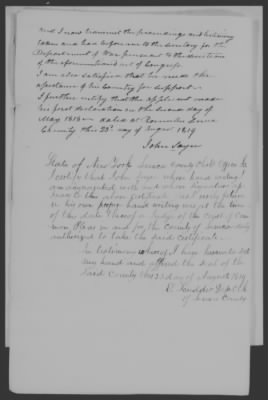 and I now transmit the proceedings and testimony
taken and had before me to the Secretary for the
Department of War pursuant to the directions
of the aforementioned act of Congress
I am also satisfied that he needs the
assistance of his Country for support —
I further certify that the applicant made
his first declaration on the second day of
May 1818 — dated at Seneca
County this 23d day of August 1819
John Sayre
State of New York Seneca County Clerk Office
I certify that John Sayre whose hand writing I
am acquainted with and whose signature
to the above certificate is
in his own proper hand writing was at the time
of the date thereof a Judge of the court of Com
mon Pleas in and for the County of Seneca duly
authorized to take the said certificate.
In testimony whereof I have hereunto set
my hand and affixed the Seal of the
said County this 23 day of August 1819
Dep. Clk
of Seneca County